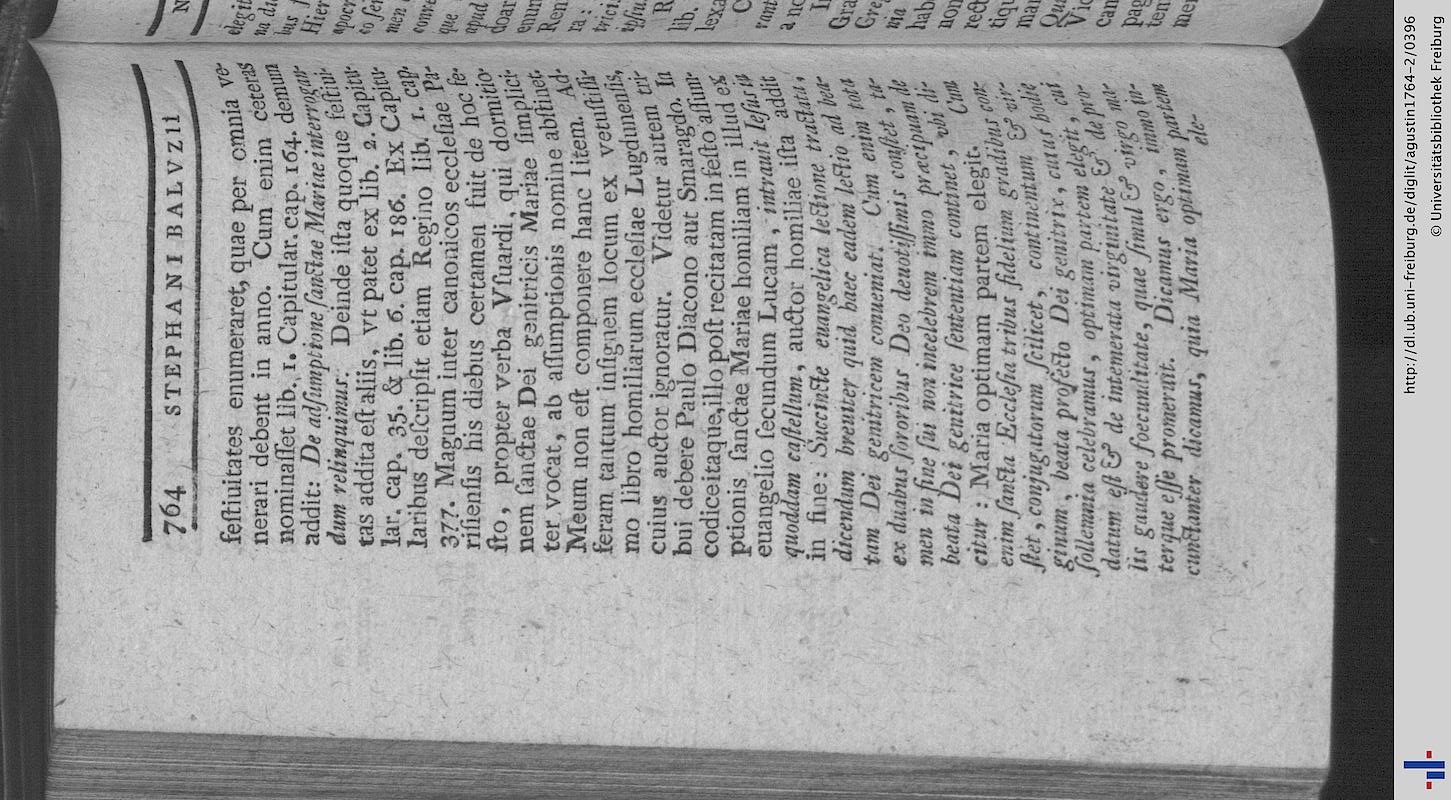 764 STEPHANI BALVZII
feſtiuitates enumeraret, quae per omnia ve-
nerari debent in anno. Cum enim ceteras
nominaſſet lib. 1. Capitular. cap. 164. demum
addit: De adſumptione ſanctae Mariae interrogan-
dum relinquimus. Deinde iſta quoque feſtiui-
tas addita eſt aliis, vt patet ex lib. 2. Capitu-
lar. cap. 35. & lib. 6. cap. 186. Ex Capitu-
laribus deſcripſit etiam Regino lib. 1. cap.
377. Magnum inter canonicos eccleſiae Pa-
riſienſis his diebus certamen fuit de hoc fe-
ſto, propter verba Vſuardi, qui dormitio-
nem ſanctae Dei genitricis Mariae ſimplici-
ter vocat, ab aſſumptionis nomine abſtinet.
Meum non eſt componere hanc litem. Ad-
feram tantum inſignem locum ex vetuſtiſſi-
mo libro homiliarum eccleſiae Lugdunenſis,
cuius auctor ignoratur. Videtur autem tri-
bui debere Paulo Diacono aut Smaragdo. In
codice itaque, illo poſt recitatam in feſto aſſum-
ptionis ſanctae Mariae homiliam in illud ex
euangelio ſecundum Lucam, intrauit Ieſus in
quoddam caſtellum, auctor homiliae iſta addit
in fine: Succincte euangelica lectione tractata,
dicendum breuiter quid haec eadem lectio ad bea-
tam Dei genitricem conueniat. Cum enim tota
ex duabus ſororibus Deo deuotiſſimis conſtet, ta-
men in fine ſui non incelebrem immo praecipuam de
beata Dei genitrice ſententiam continet, vbi di-
citur: Maria optimam partem elegit. Cum
enim ſancta Eccleſia tribus fidelium gradibus con-
ſtet, conjugatorum ſcilicet, continentum & vir-
ginum, beata profecto Dei genitrix, cuius hodie
ſollemnia celebramus, optimam partem elegit, cui
datum eſt & de intemerata virginitate & de pro-
lis gaudere foecunditate, quae ſimul & virgo ma-
terque eſſe promeruit. Dicamus ergo, immo in-
cunctanter dicamus, quia Maria optimam partem
ele-
http://dl.ub.uni-freiburg.de/diglit/agustin1764-2/0396
© Universitätsbibliothek Freiburg